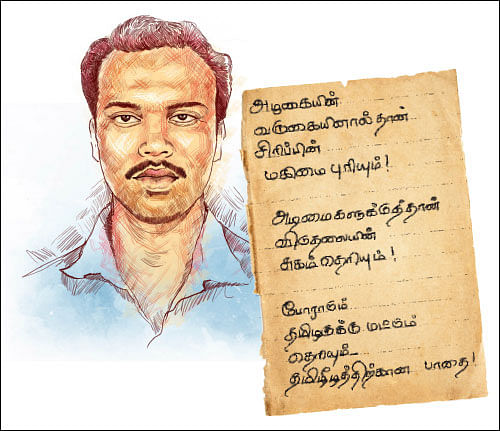 அழுகையின்
வருகையினால் தான்
சிரிப்பின்
மகிமை புரியும்!
அடிமைகளுக்குத்தான்
விடுதலையின்
சுகம் தெரியும்!
போராடும்
தமிழனுக்கு மட்டும்
தெரியும்
தமிழீழத்திற்கான பாதை!